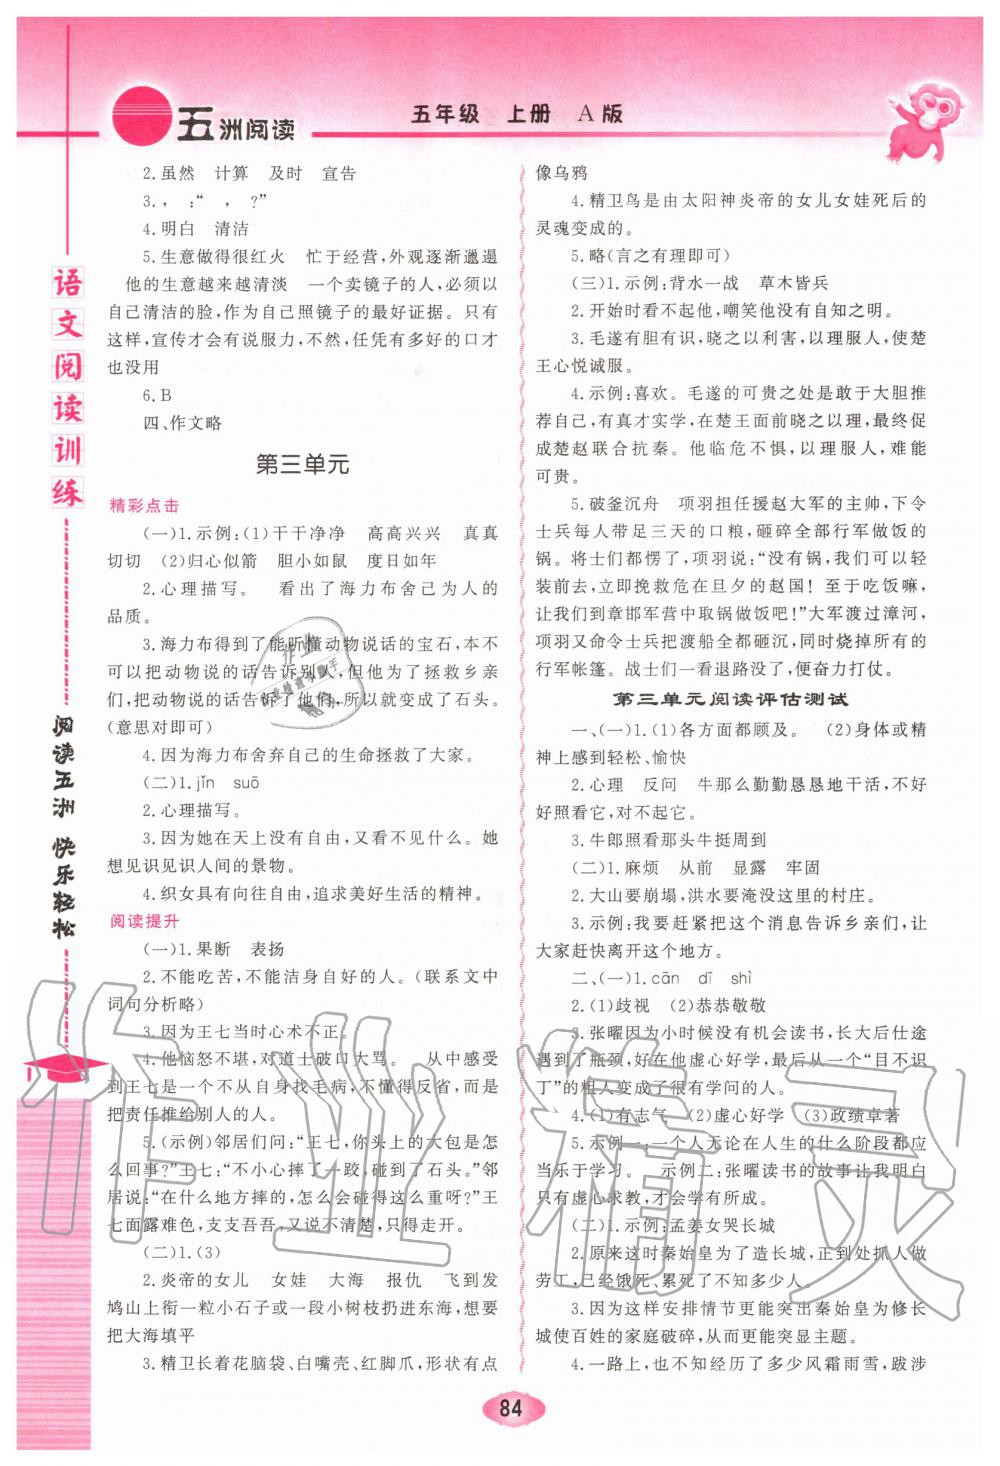 五洲阅读
五年级 上册 A版
语文阅读训练
阅读五洲 快乐轻松
2.虽然 计算 及时 宣告
3.，:“ ，?”
4.明白 清洁
5.生意做得很红火 忙于经营,外观逐渐邋遢
他的生意越来越清淡 一个卖镜子的人,必须以
自己清洁的脸,作为自己照镜子的最好证据。只有
这样,宣传才会有说服力,不然,任凭有多好的口才
也没用
6.B
四、作文略
第三单元
精彩点击
(一)1.示例:(1)干干净净 高高兴兴 真真
切切 (2)归心似箭 胆小如鼠 度日如年
2.心理描写。 看出了海力布舍己为人的
品质。
3.海力布得到了能听懂动物说话的宝石,本不
可以把动物说的话告诉别人,但他为了拯救乡亲
们,把动物说的话告诉了他们,所以就变成了石头。
(意思对即可)
4.因为海力布舍弃自己的生命拯救了大家。
(二)1.jǐn suō
2.心理描写。
3.因为她在天上没有自由,又看不见什么。她
想见识见识人间的景物。
4.织女具有向往自由,追求美好生活的精神。
阅读提升
(一)1.果断 表扬
2.不能吃苦,不能洁身自好。(联系文中
词句分析略)
3.因为王七当时心术不正。
4.他恼怒不堪,对道士破口大骂。 从中感受
到王七是一个不从自身找毛病,不懂得反省,而是
把责任推给别人的人。
5.(示例)邻居们问:“王七,你头上的大包是怎
么回事?”王七:“不小心摔了一跤,碰到了石头。”邻
居说:“在什么地方摔的,怎么会碰得这么重呀?”王
七面露难色,支支吾吾,又说不清楚,只得走开。
(二)1.(3)
2.炎帝的女儿 女娃 大海 报仇 飞到发
鸠山上衔一粒小石子或一段小树枝扔进东海,想要
把大海填平
3.精卫长着花脑袋、白嘴壳、红脚爪,形状有点
像乌鸦
4.精卫鸟是由太阳神炎帝的女儿女娃死后的
灵魂变成的。
5.略(言之有理即可)
(三)1.示例:背水一战 草木皆兵
2.开始时看不起他,嘲笑他没有自知之明。
3.毛遂有胆有识,晓之以利害,以理服人,使楚
王心悦诚服。
4.示例:喜欢。毛遂的可贵之处是敢于大胆推
荐自己,有真才实学,在楚王面前晓之以理,最终促
成楚赵联合抗秦。他临危不惧,以理服人,难能
可贵。
5.破釜沉舟 项羽担任援赵大军的主帅,下令
士兵每人带足三天的口粮,砸碎全部行军做饭的
锅。将士们都愣了,项羽说:“没有锅,我们可以轻
装前进,立即挽救危在旦夕的赵国! 至于吃饭嘛,
让我们到章邯军营中取锅做饭吧!”大军渡过漳河,
项羽又命令士兵把渡船全都砸沉,同时烧掉所有的
行军帐篷。战士们一看退路没了,便奋力打仗。
第三单元阅读评估测试
一、(一)1.(1)各方面都顾及。 (2)身体或精
神上感到轻松、愉快
2.心理 反问 牛那么勤勤恳恳地干活,不好
好照看它,对不起它。
3.牛郎照看那头牛挺周到
(二)1.麻烦 从前 显露 牢固
2.大山要崩塌,洪水要淹没这里的村庄。
3.示例:我要赶紧把这个消息告诉乡亲们,让
大家赶快离开这个地方。
二、(一)1.cān dī shì
2.(1)歧视 (2)恭恭敬敬
3.张曜因为小时候没有机会读书,长大后仕途
遇到了瓶颈,好在他虚心好学,并从一个“目不识
丁”的粗人变成了很有学问的人。
4.(1)有志气 (2)虚心好学 (3)政绩卓著
5.示例一:一个人无论在人生的什么阶段都应
当乐于学习。 示例二:张曜读书的故事让我明白
只有虚心求教,才会学有所成。
(二)1.示例:孟姜女哭长城
2.原来这时秦始皇为了造长城,正到处抓人做
劳工,已经饿死、累死了不知多少人。
3.因为这样安排情节更能突出秦始皇为修长
城使百姓的家庭破碎,从而更能突显主题。
4.一路上,也不知经历了多少风霜雨雪,跋涉
84
作业精灵